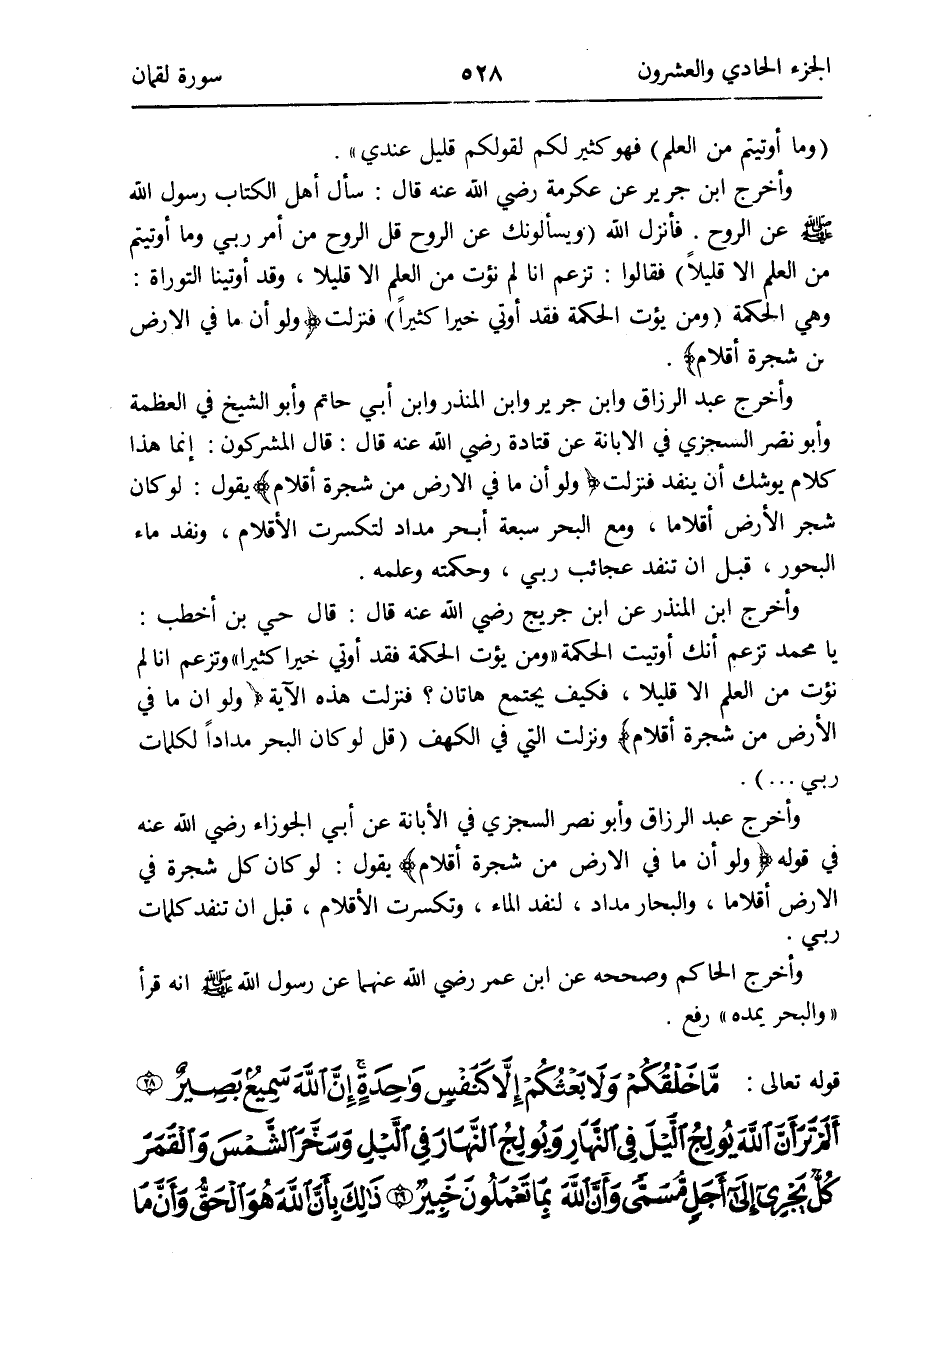 الجزء الحادي والعشرون ٥٢٨ سورة لقمان
(وما أوتيتم من العلم) فهو كثير لكم لقولكم قليل عندي» .
وأخرج ابن جرير عن عكرمة رضي الله عنه قال : سأل أهل الكتاب رسول الله
ﷺ عن الروح . فأنزل الله (ويسألونك عن الروح قل الروح من أمر ربي وما أوتيتم
من العلم الا قليلاً) فقالوا : تزعم انا لم نؤت من العلم الا قليلا ، وقد أوتينا التوراة :
وهي الحكمة (ومن يؤت الحكمة فقد أوتي خيرا كثيراً) فنزلت ﴿ولو أن ما في الارض
من شجرة أقلام﴾ .
وأخرج عبد الرزاق وابن جرير وابن المنذر وابن أبي حاتم وأبو الشيخ في العظمة
وأبو نصر السجزي في الابانة عن قتادة رضي الله عنه قال : قال المشركون : إنما هذا
كلام يوشك أن ينفد فنزلت ﴿ولو أن ما في الارض من شجرة أقلام﴾ يقول : لو كان
شجر الأرض أقلاما ، ومع البحر سبعة أبحر مداد لتكسرت الأقلام ، ونفد ماء
البحور ، قبل ان تنفد عجائب ربي ، وحكمته وعلمه .
وأخرج ابن المنذر عن ابن جريج رضي الله عنه قال : قال حي بن أخطب :
يا محمد تزعم أنك أوتيت الحكمة «ومن يؤت الحكمة فقد أوتي خيرا كثيرا» وتزعم انا لم
نؤت من العلم الا قليلا ، فكيف يجتمع هاتان ؟ فنزلت هذه الآية ﴿ولو ان ما في
الأرض من شجرة أقلام﴾ ونزلت التي في الكهف (قل لو كان البحر مداداً لكلمات
ربي ...) .
وأخرج عبد الرزاق وأبو نصر السجزي في الأبانة عن أبي الجوزاء رضي الله عنه
في قوله ﴿ولو أن ما في الارض من شجرة أقلام﴾ يقول : لو كان كل شجرة في
الارض أقلاما ، والبحار مداد ، لنفد الماء ، وتكسرت الأقلام ، قبل ان تنفد كلمات
ربي .
وأخرج الحاكم وصححه عن ابن عمر رضي الله عنهما عن رسول الله ﷺ انه قرأ
«والبحر يمده» رفع .
قوله تعالى : مَّا خَلْقُكُمْ وَلَا بَعْثُكُمْ إِلَّا كَنَفْسٍ وَٰحِدَةٍ ۗ إِنَّ ٱللَّهَ سَمِيعٌۢ بَصِيرٌ ٢٨
أَلَمْ تَرَ أَنَّ ٱللَّهَ يُولِجُ ٱلَّيْلَ فِي ٱلنَّهَارِ وَيُولِجُ ٱلنَّهَارَ فِي ٱلَّيْلِ وَسَخَّرَ ٱلشَّمْسَ وَٱلْقَمَرَ
كُلٌّ يَجْرِىٓ إِلَىٰٓ أَجَلٍ مُّسَمًّى وَأَنَّ ٱللَّهَ بِمَا تَعْمَلُونَ خَبِيرٌ ٢٩ ذَٰلِكَ بِأَنَّ ٱللَّهَ هُوَ ٱلْحَقُّ وَأَنَّ مَا